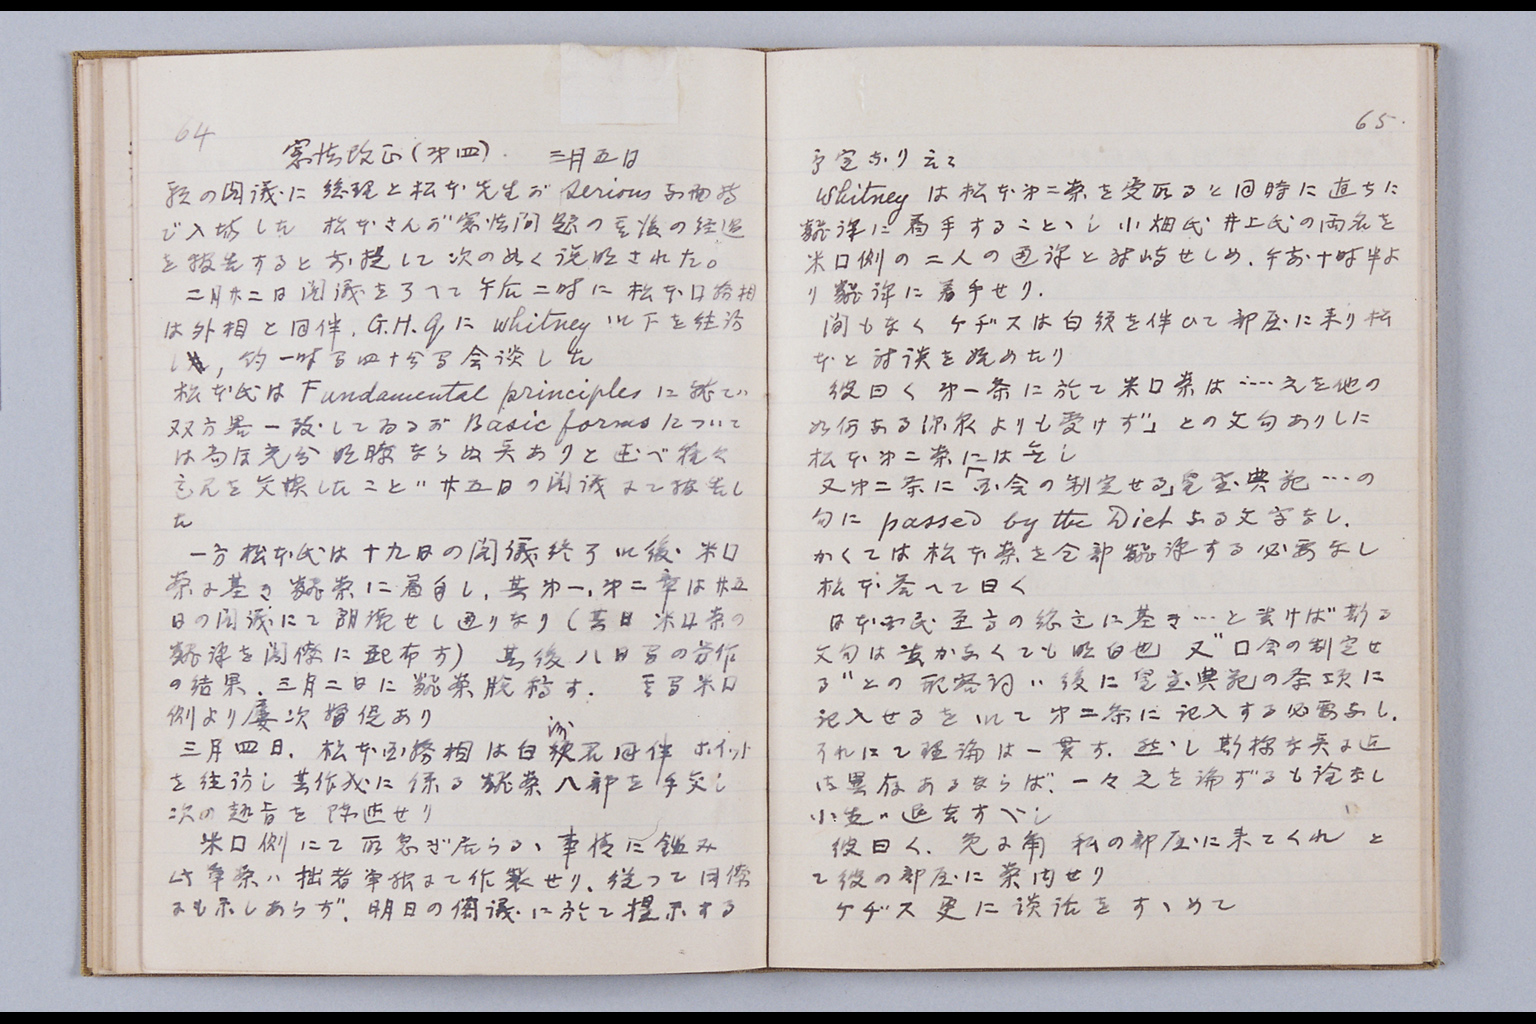 64
憲法改正(第四). 三月五日
の閣議に総理と松本先生が serious な面持
で入場した 松本さんが憲法問題の其後の経過
を報告すると前提して次の如く説明された。
二月廿二日閣議を了へて午后二時に松本国務相
は外相と同伴. G.H.Q に Whitney 以下を往訪
し, 約一時間四十分間会談した
松本氏は Fundamental principles に就てハ
双方略一致してゐるが Basic forms について
は尚ほ充分明瞭ならぬ点ありと述べ種々
意見を交換したことハ廿五日の閣議にて報告し
た
一方松本氏は十九日の閣議終了以後 米国
案に基き飜案に着手し, 其第一, 第二章は廿五
日の閣議にて朗読せし通りなり(其日 米国案の
飜訳を閣僚に配布す) 其後八日間の労作
の結果, 三月二日に飜案脱稿す. 其間米国
側より屡次督促あり
三月四日, 松本国務相は白洲君同伴 ホイット
を往訪し其作成に係る飜案八部を手交し
次の趣旨を陳述せり
米国側にて取急ぎ居らるゝ事情に鑑み
此草案ハ拙者単独にて作製せり, 従って閣僚
にも示しあらず, 明日の閣議に於て提示する
65.
予定なり云々
Whitney は松本第二案を受取ると同時に直ちに
飜訳に着手することゝし 小畑氏 井上氏の両名を
米国側の二人の通訳と対峙せしめ, 午前十時半よ
り飜訳に着手せり.
間もなく ケヂスは白須を伴ひて部屋に来り松
本と対談を始めたり
彼曰く 第一条に於て米国案は……之を他の
如何なる源泉よりも受けず」との文句ありしに
松本第二案には無し
又第二条に「国会の制定せる」皇室典範…の
句に passed by the Diet なる文字なし.
かくては松本案を全部飜訳する必要なし
松本答へて曰く
日本国民至高の総意に基き…と書けば斯る
文句は書かなくても明白也 又"国会の制定せ
る"との形容詞ハ後に皇室典範の条項に
記入せるを以て第二条に記入する必要なし.
それにて理論は一貫す. 然し斯様な点に迄
御異存あるならば, 一々之を論ずるも詮なし
小生ハ退去すべし
彼曰く, 兎に角 私の部屋に来てくれ と
て彼の部屋に案内せり
ケヂス更に談話をすゝめて